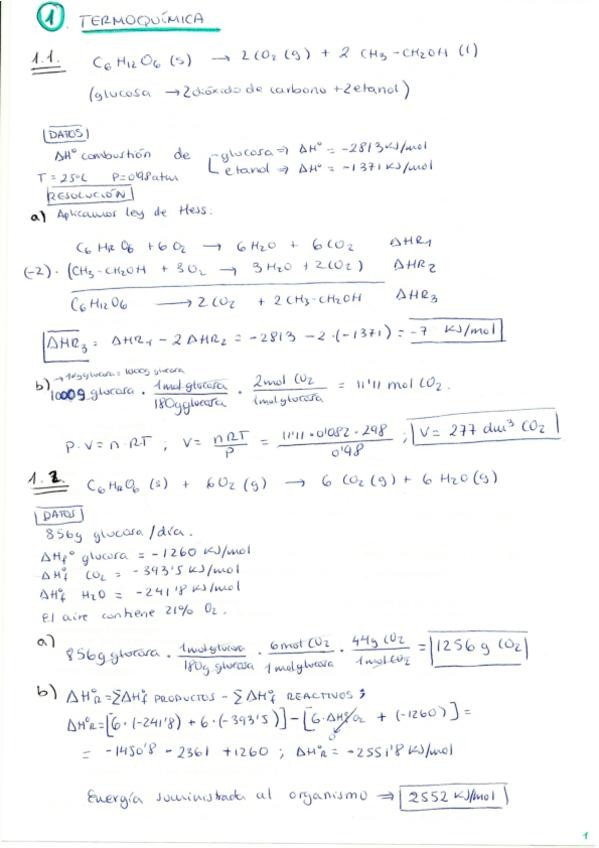 1. TERMOQUÍMICA
1.1. C6H12O6 (s) → 2CO2 (g) + 2 CH3-CH2OH (l)
(glucosa → 2dióxido de carbono + 2etanol)
DATOS
ΔHº combustión de glucosa ⇒ ΔHº = -2813 KJ/mol
etanol ⇒ ΔHº = -1371 KJ/mol
T = 25ºC P=0'98atm
RESOLUCIÓN
a) Aplicamos ley de Hess:
C6H12O6 + 6O2 → 6H2O + 6CO2 ΔHR1
(-2) · (CH3-CH2OH + 3O2 → 3H2O + 2CO2) ΔHR2
C6H12O6 → 2CO2 + 2CH3-CH2OH ΔHR3
ΔHR3 = ΔHR1 - 2ΔHR2 = -2813 - 2·(-1371) = -7 KJ/mol
→ 1kg glucosa = 1000g glucosa
b) 1000g glucosa · 1mol glucosa / 180g glucosa · 2mol CO2 / 1mol glucosa = 11'11 mol CO2.
P·V = n·RT ; V = nRT / P = 11'11·0'082·298 / 0'98 ; V = 277 dm³ CO2
1.2. C6H12O6 (s) + 6O2 (g) → 6 CO2 (g) + 6 H2O (g)
DATOS
856g glucosa / día.
ΔHfº glucosa = -1260 KJ/mol
ΔHfº CO2 = -393'5 KJ/mol
ΔHfº H2O = -241'8 KJ/mol
El aire contiene 21% O2.
a) 856g glucosa · 1mol glucosa / 180g glucosa · 6mol CO2 / 1mol glucosa · 44g CO2 / 1mol CO2 = 1256 g CO2
b) ΔHºR = ΣΔHºf PRODUCTOS - ΣΔHºf REACTIVOS ;
ΔHºR = [6·(-241'8) + 6·(-393'5)] - [6·ΔHºf O2 + (-1260)] =
0
= -1450'8 - 2361 + 1260 ; ΔHºR = -2551'8 KJ/mol
Energía suministrada al organismo ⇒ 2552 KJ/mol
1